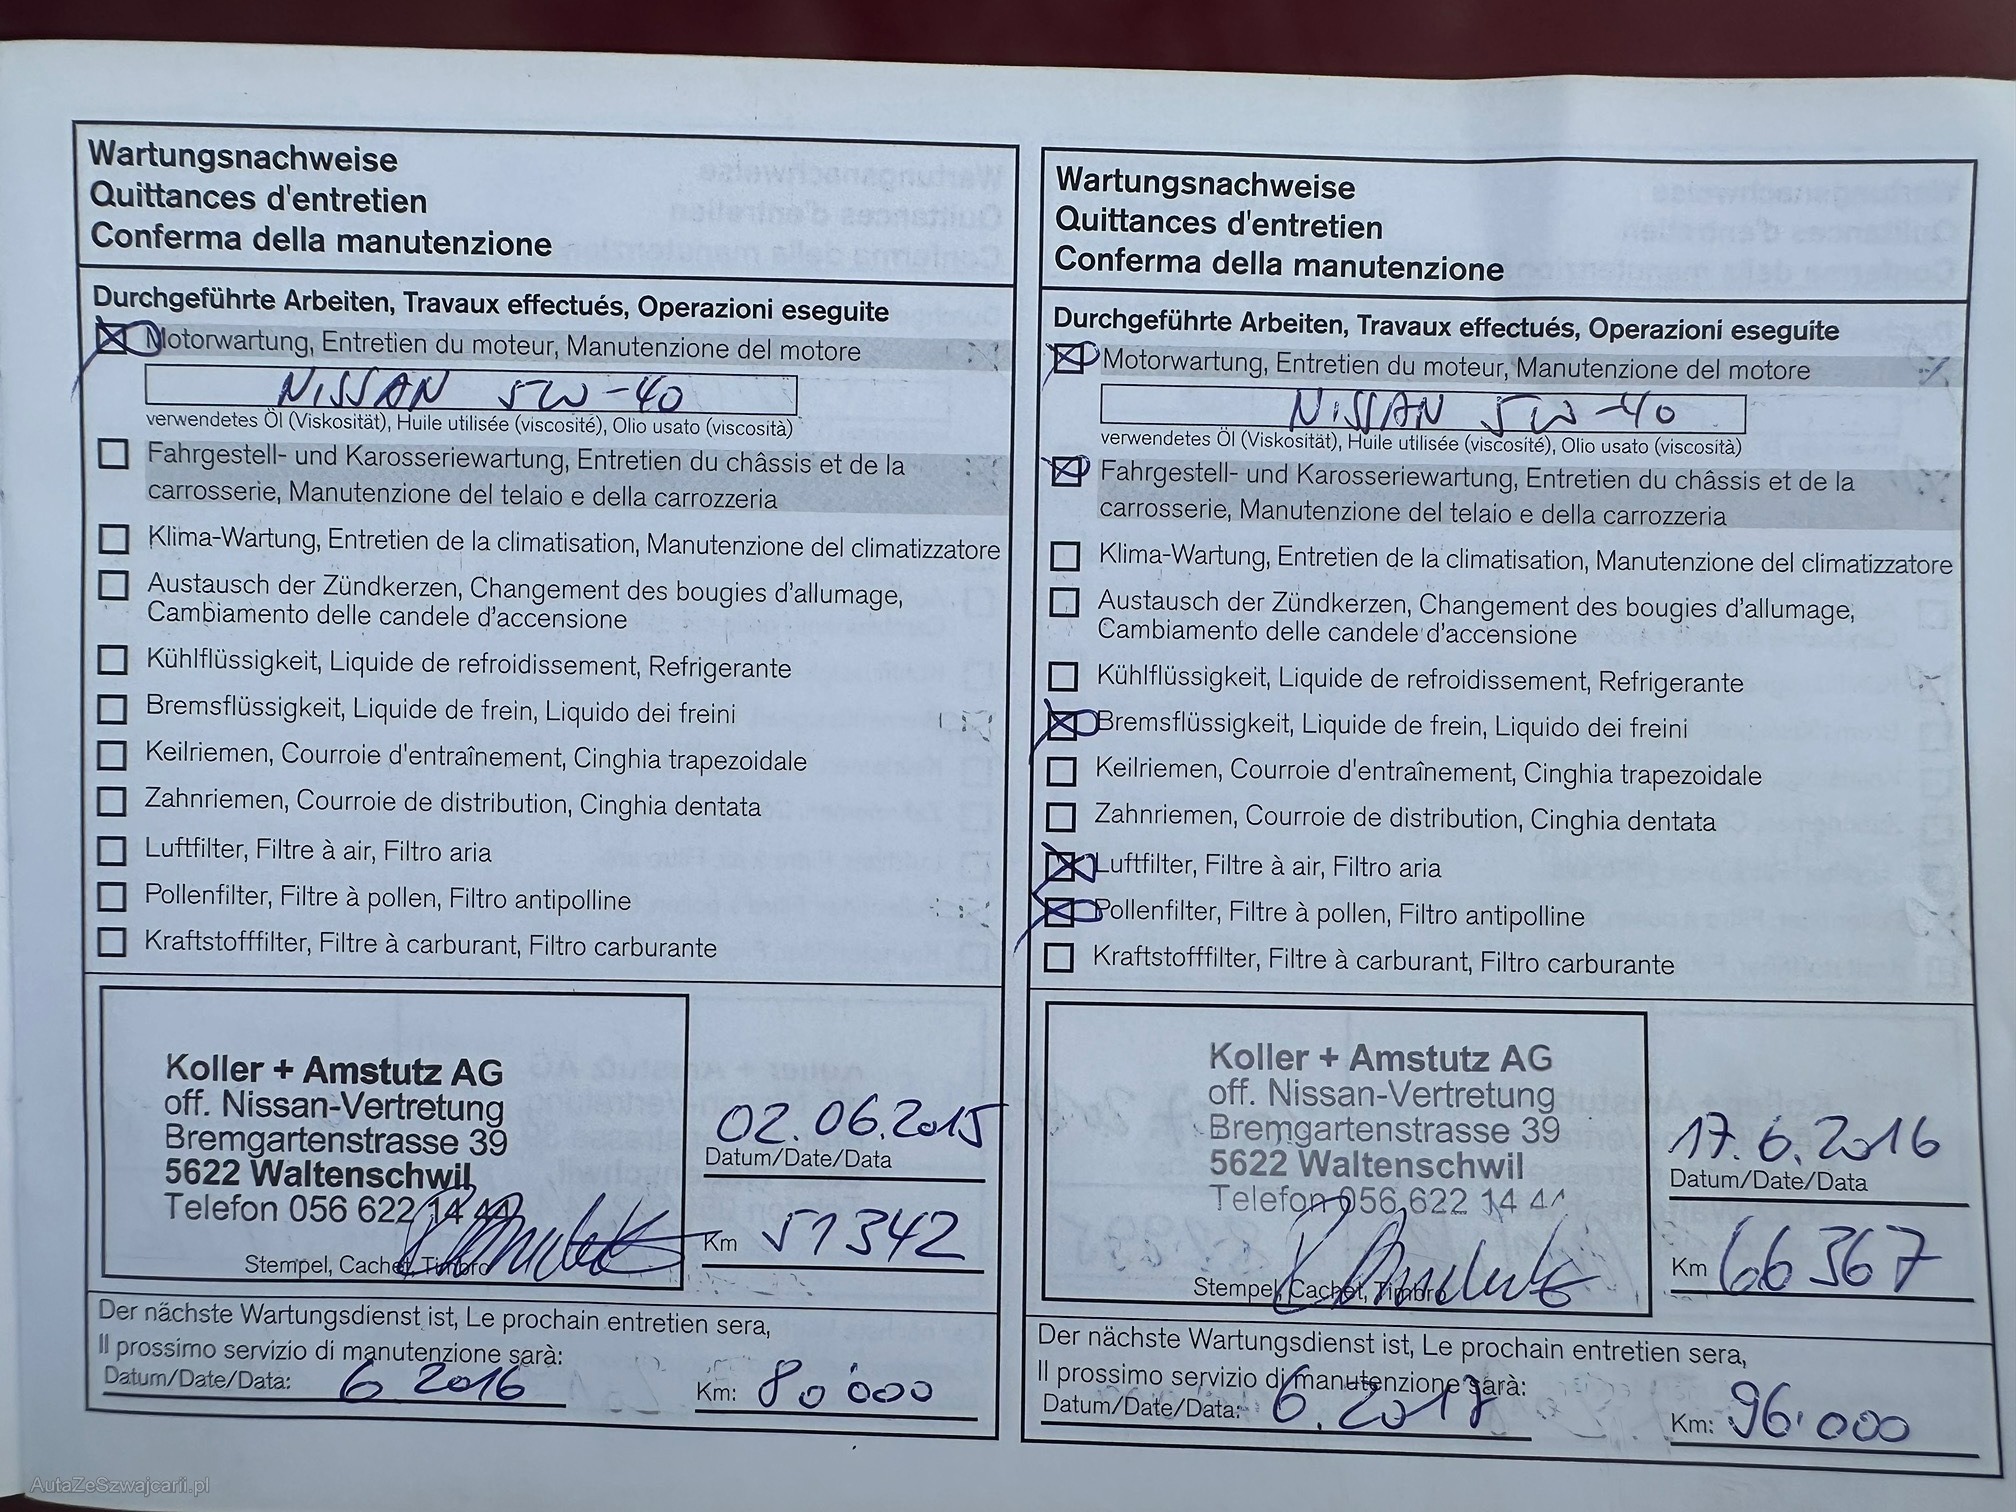 Wartungsnachweise
Quittances d'entretien
Conferma della manutenzione
Durchgeführte Arbeiten, Travaux effectués, Operazioni eseguite
Motorwartung, Entretien du moteur, Manutenzione del motore
NISSAN 5W-40
verwendetes Öl (Viskosität), Huile utilisée (viscosité), Olio usato (viscosità)
Fahrgestell- und Karosseriewartung, Entretien du châssis et de la
carrosserie, Manutenzione del telaio e della carrozzeria
Klima-Wartung, Entretien de la climatisation, Manutenzione del climatizzatore
Austausch der Zündkerzen, Changement des bougies d'allumage,
Cambiamento delle candele d'accensione
Kühlflüssigkeit, Liquide de refroidissement, Refrigerante
Bremsflüssigkeit, Liquide de frein, Liquido dei freini
Keilriemen, Courroie d'entraînement, Cinghia trapezoidale
Zahnriemen, Courroie de distribution, Cinghia dentata
Luftfilter, Filtre à air, Filtro aria
Pollenfilter, Filtre à pollen, Filtro antipolline
Kraftstofffilter, Filtre à carburant, Filtro carburante
Koller + Amstutz AG
off. Nissan-Vertretung
Bremgartenstrasse 39
5622 Waltenschwil
Telefon 056 622 14 44
Stempel, Cachet, Timbro
02.06.2015
Datum/Date/Data
Km 51342
Der nächste Wartungsdienst ist, Le prochain entretien sera,
Il prossimo servizio di manutenzione sarà:
Datum/Date/Data: 6 2016 Km: 80'000
Wartungsnachweise
Quittances d'entretien
Conferma della manutenzione
Durchgeführte Arbeiten, Travaux effectués, Operazioni eseguite
Motorwartung, Entretien du moteur, Manutenzione del motore
NISSAN 5W-40
verwendetes Öl (Viskosität), Huile utilisée (viscosité), Olio usato (viscosità)
Fahrgestell- und Karosseriewartung, Entretien du châssis et de la
carrosserie, Manutenzione del telaio e della carrozzeria
Klima-Wartung, Entretien de la climatisation, Manutenzione del climatizzatore
Austausch der Zündkerzen, Changement des bougies d'allumage,
Cambiamento delle candele d'accensione
Kühlflüssigkeit, Liquide de refroidissement, Refrigerante
Bremsflüssigkeit, Liquide de frein, Liquido dei freini
Keilriemen, Courroie d'entraînement, Cinghia trapezoidale
Zahnriemen, Courroie de distribution, Cinghia dentata
Luftfilter, Filtre à air, Filtro aria
Pollenfilter, Filtre à pollen, Filtro antipolline
Kraftstofffilter, Filtre à carburant, Filtro carburante
Koller + Amstutz AG
off. Nissan-Vertretung
Bremgartenstrasse 39
5622 Waltenschwil
Telefon 056 622 14 44
Stempel, Cachet, Timbro
17.6.2016
Datum/Date/Data
Km 66367
Der nächste Wartungsdienst ist, Le prochain entretien sera,
Il prossimo servizio di manutenzione sarà:
Datum/Date/Data: 6.2017 Km: 96.000
AutaZeSzwajcarii.pl